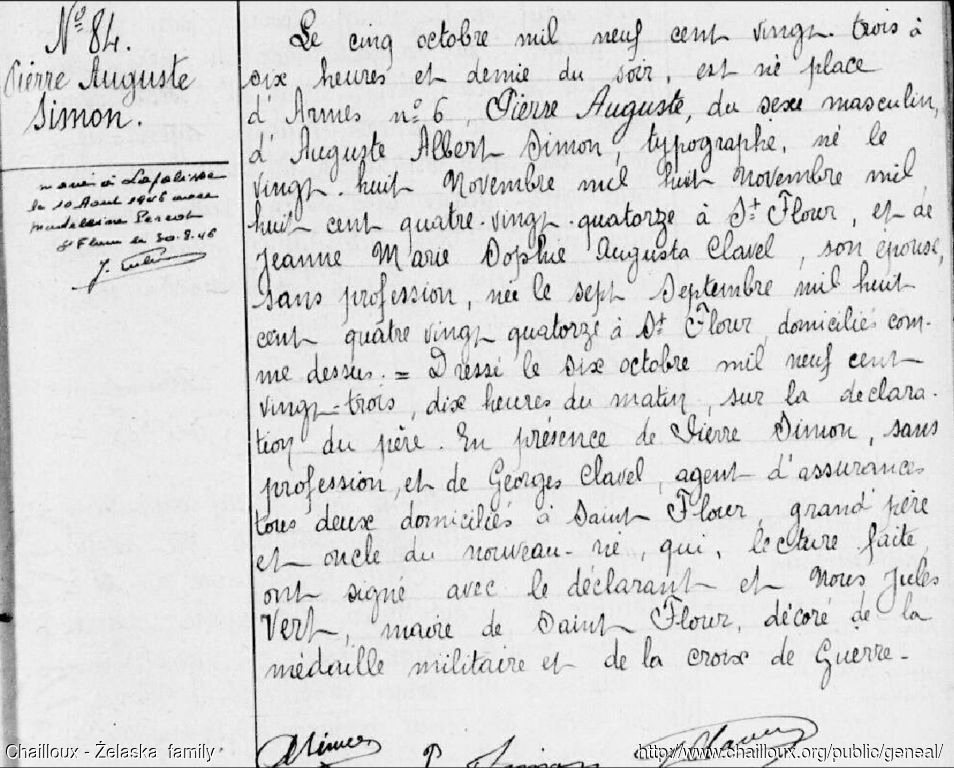 N° 84.
Pierre Auguste
Simon.
marié à Lapalisse
le 10 Aout 1946 avec
Madeleine
St Flour le 30-8-46
Le cinq octobre mil neuf cent vingt-trois à
six heures et demie du soir, est né place
d'Armes n° 6, Pierre Auguste, du sexe masculin,
d'Auguste Albert Simon, typographe, né le
vingt-huit Novembre mil huit Novembre mil
huit cent quatre-vingt-quatorze à St Flour, et de
Jeanne Marie Sophie Augusta Clavel, son épouse,
sans profession, née le sept Septembre mil huit
cent quatre vingt quatorze à St Flour, domiciliés com-
me dessus. = Dressé le six octobre mil neuf cent
vingt-trois, dix heures du matin, sur la déclara-
tion du père. En présence de Pierre Simon, sans
profession, et de Georges Clavel, agent d'assurances
tous deux domiciliés à Saint Flour, grand'père
et oncle du nouveau-né, qui, lecture faite,
ont signé avec le déclarant et Nous Jules
Vert, maire de Saint Flour, décoré de la
médaille militaire et de la croix de Guerre-
ASimon P. Simon GClavel
Chailloux - Żelaska family
http://www.chailloux.org/public/geneal/